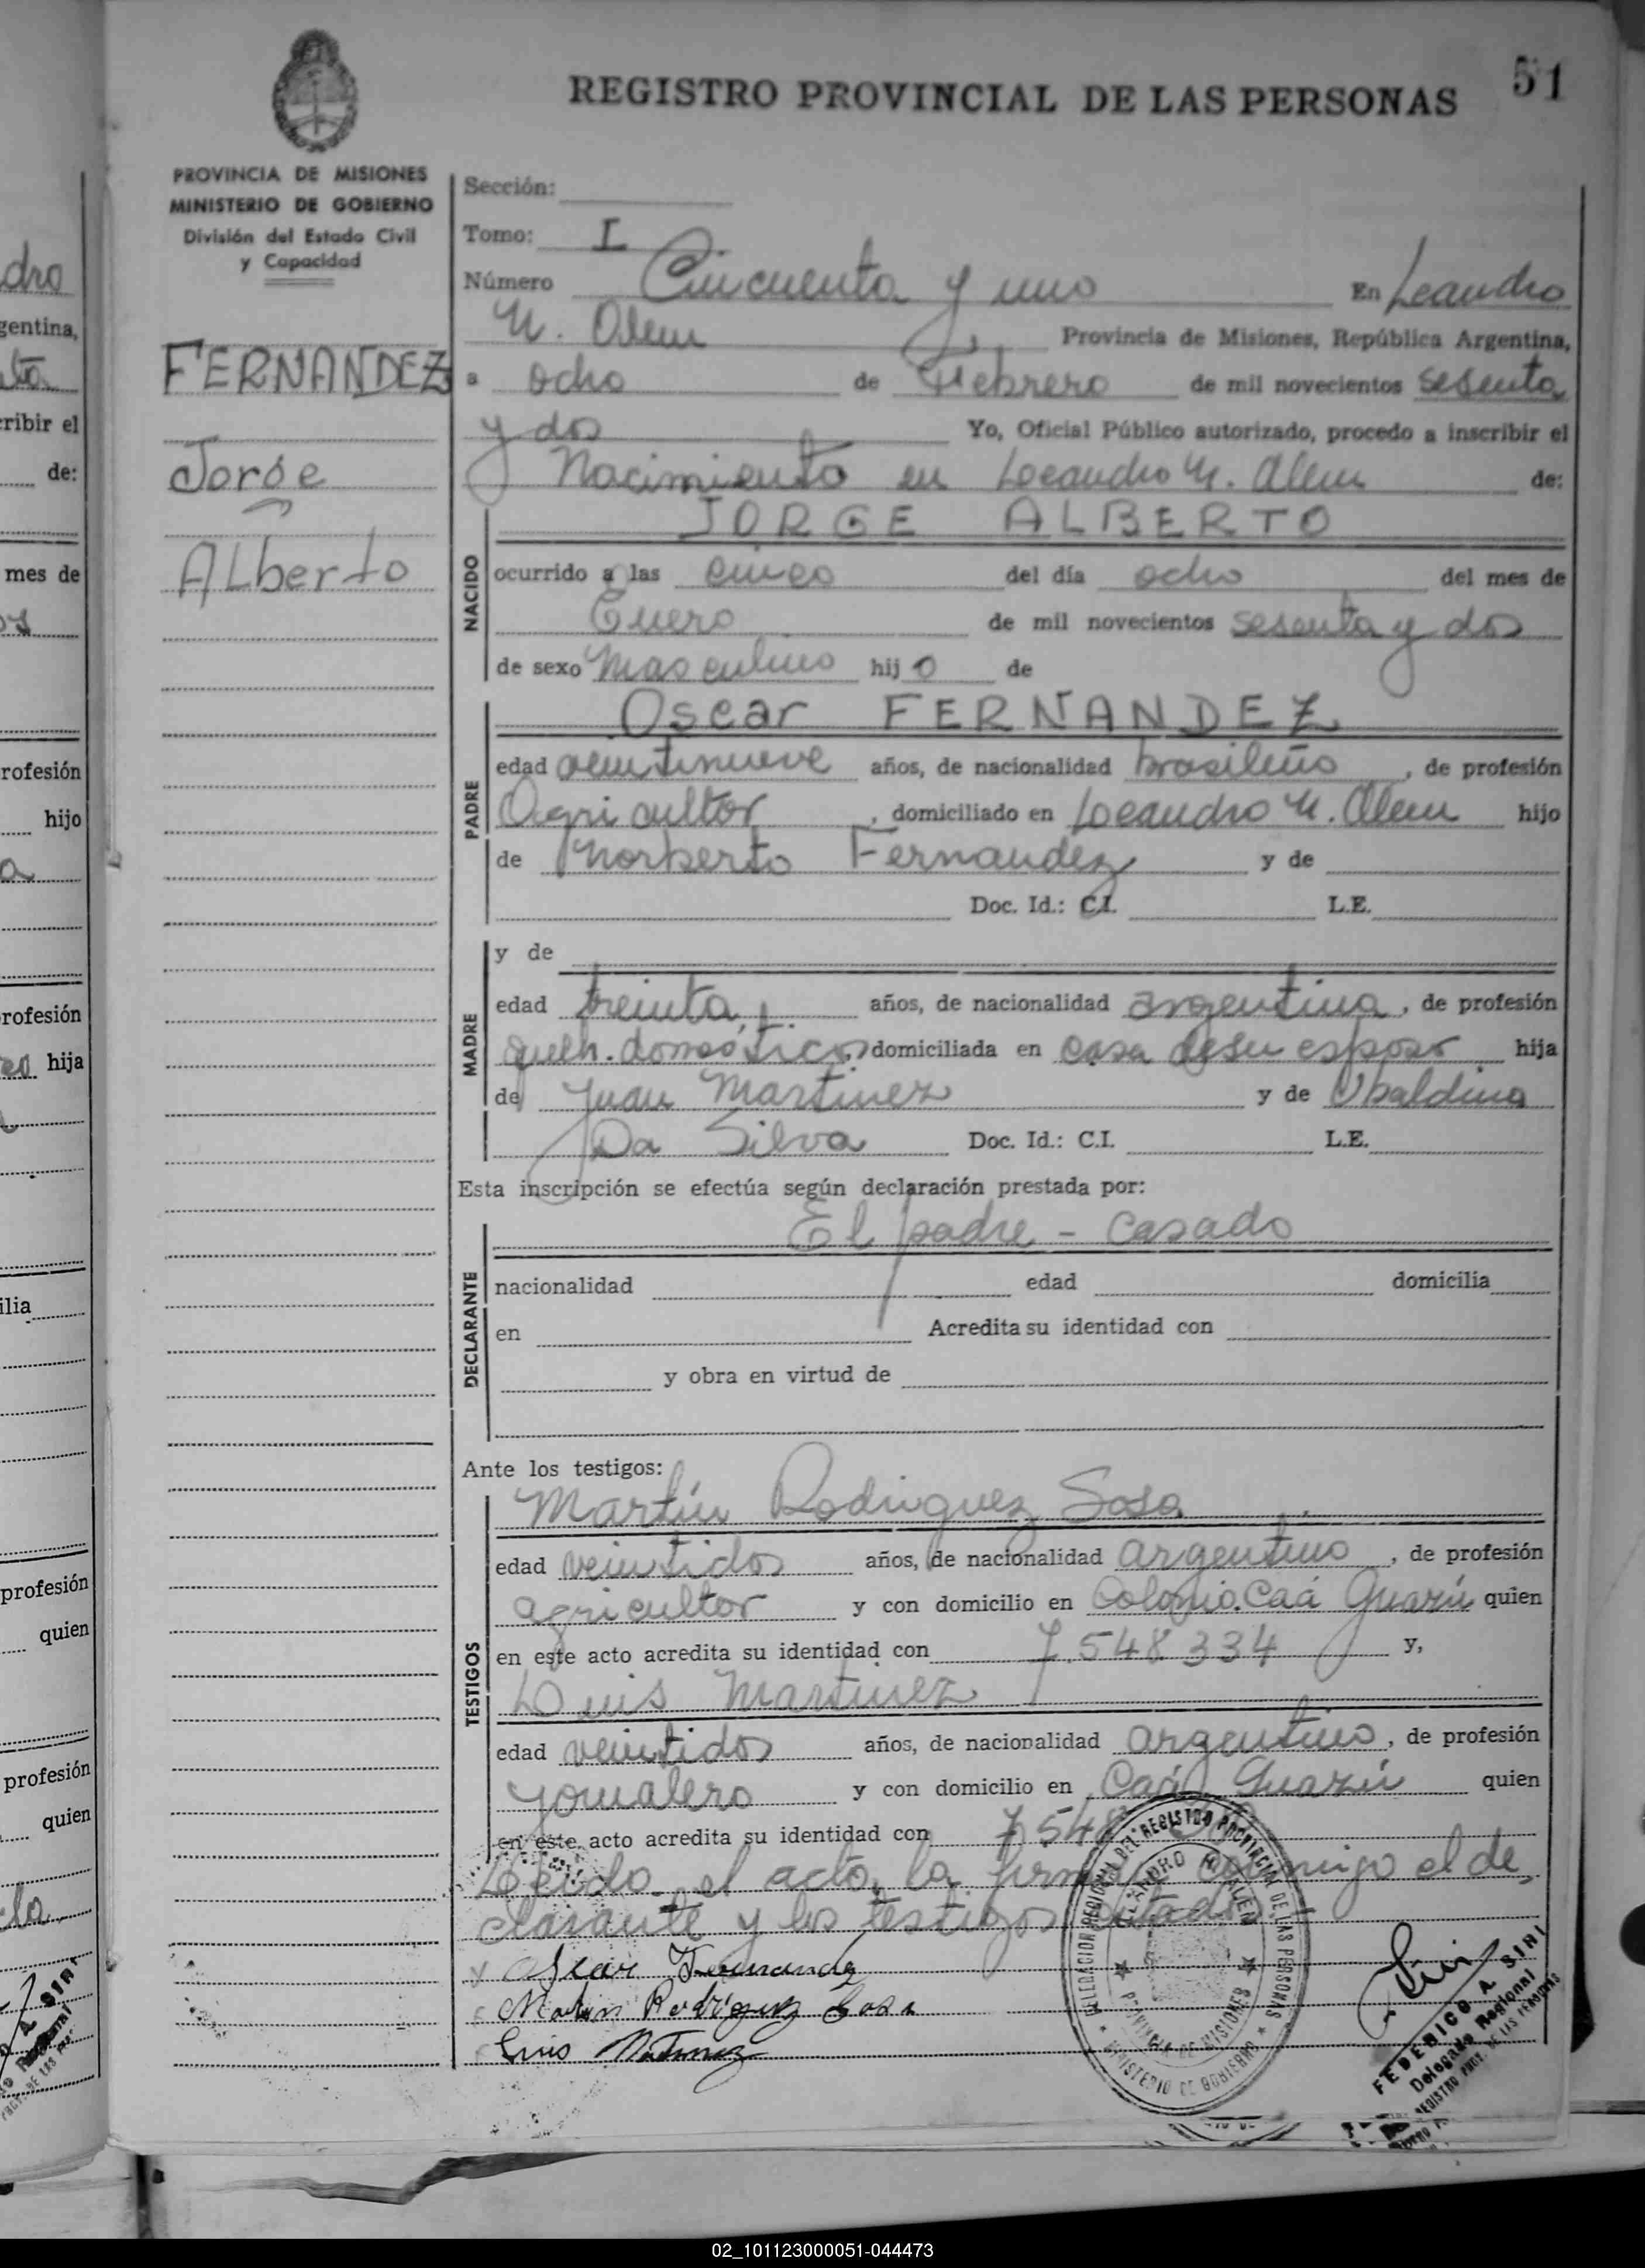 REGISTRO PROVINCIAL DE LAS PERSONAS
51
PROVINCIA DE MISIONES
MINISTERIO DE GOBIERNO
División del Estado Civil
y Capacidad
FERNANDEZ
Jorge
ALberto
Sección:
Tomo: I
Número Cincuenta y uno En Leandro
N. Alem Provincia de Misiones, República Argentina,
a ocho de Febrero de mil novecientos sesenta
y dos Yo, Oficial Público autorizado, procedo a inscribir el
Nacimiento en Leandro N. Alem de:
JORGE ALBERTO
NACIDO
ocurrido a las cinco del día ocho del mes de
Enero de mil novecientos sesenta y dos
de sexo masculino hijo de
Oscar FERNANDEZ
PADRE
edad veintinueve años, de nacionalidad brasileño, de profesión
Agricultor, domiciliado en Leandro N. Alem hijo
de Norberto Fernandez y de
Doc. Id.: C.I. L.E.
MADRE
y de
edad treinta años, de nacionalidad argentina, de profesión
queh. domésticos, domiciliada en casa de su esposo hija
de Juan Martinez y de Ubaldina
Da Silva Doc. Id.: C.I. L.E.
Esta inscripción se efectúa según declaración prestada por:
El padre - casado
DECLARANTE
nacionalidad edad domicilia
en Acredita su identidad con
y obra en virtud de
Ante los testigos:
Martín Rodriguez Sosa
TESTIGOS
edad veintidos años, de nacionalidad argentino, de profesión
agricultor y con domicilio en Colonia Caá Guazú quien
en este acto acredita su identidad con 7.548.334 y,
Luis Martinez
edad veintidos años, de nacionalidad argentino, de profesión
jornalero y con domicilio en Caá Guazú quien
en este acto acredita su identidad con 7.548
Leido el acto, la firman conmigo el de
clarante y los testigos citados
Oscar Fernandez
Martin Rodriguez Sosa
Luis Martinez
DELEGACION REGIONAL DEL REGISTRO PROVINCIAL DE LAS PERSONAS
LEANDRO N. ALEM
PROVINCIA DE MISIONES
MINISTERIO DE GOBIERNO
FEDERICO A. SIRI
Delegado Regional
REGISTRO PROV. DE LAS PERSONAS
02_101123000051-044473